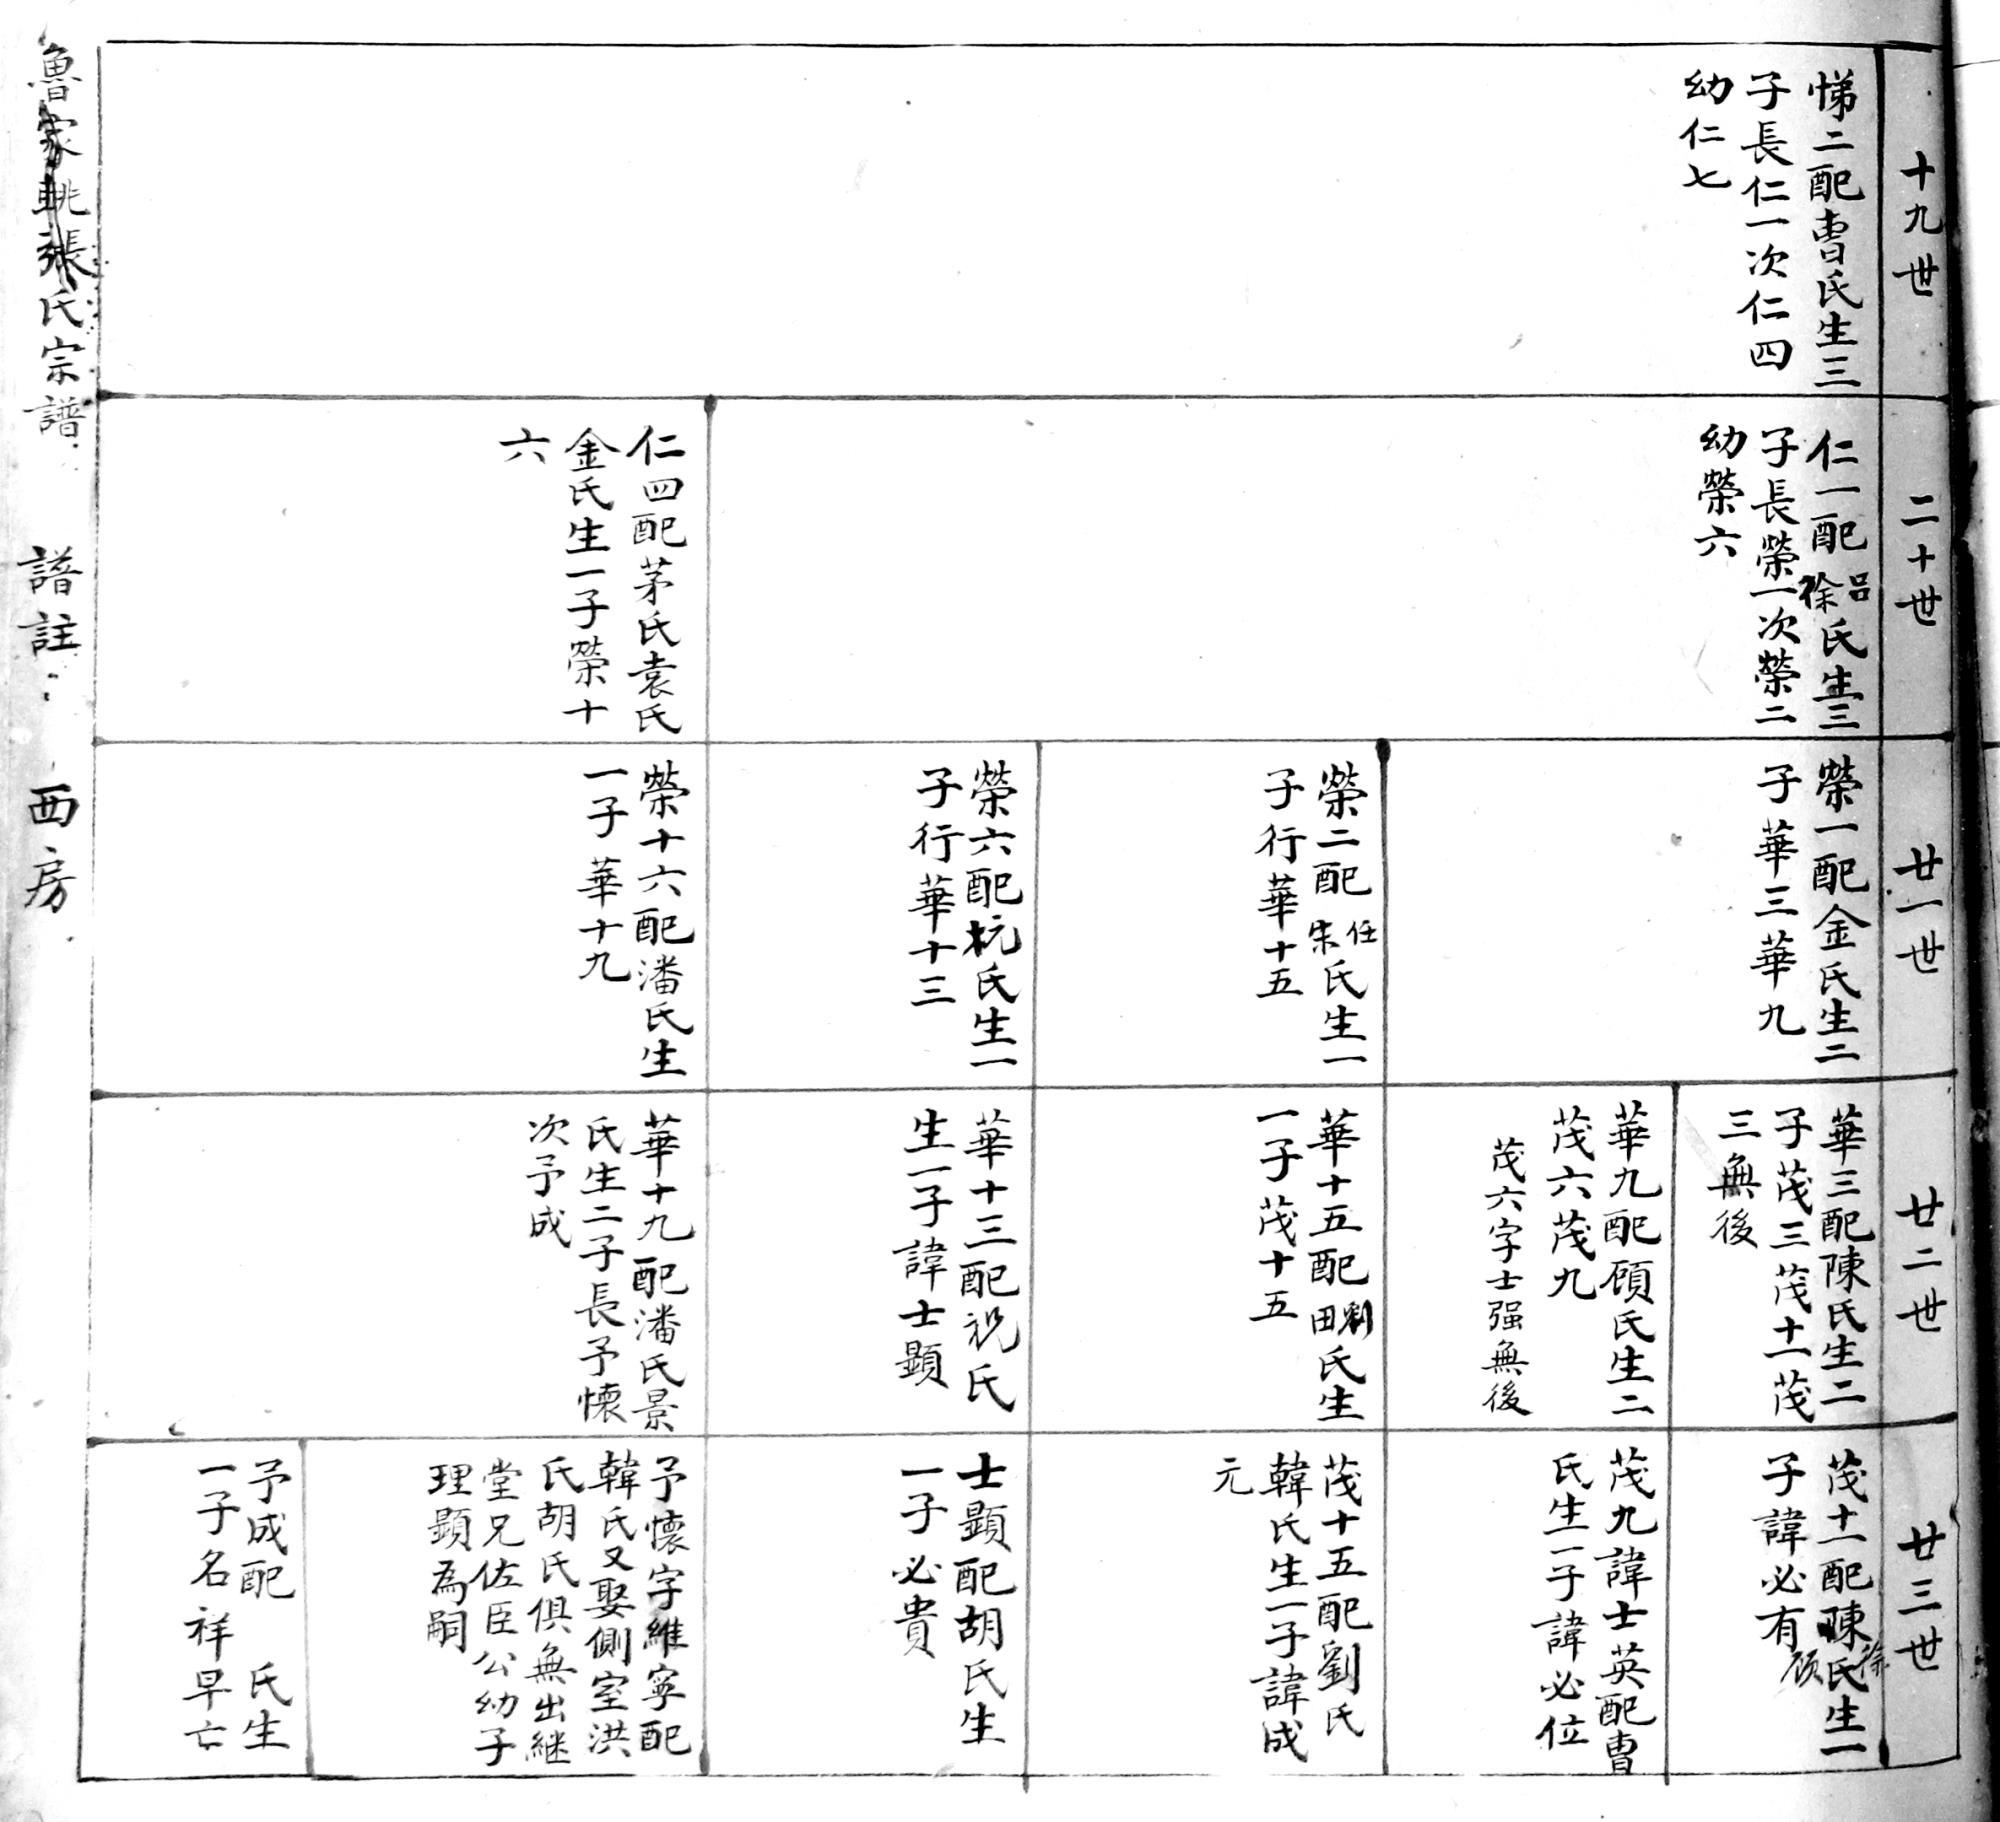 十九世
悌二配曹氏生三
子長仁一次仁四
幼仁七
二十世
仁一配呂徐氏生三
子長榮一次榮二
幼榮六
仁四配茅氏袁氏
金氏生一子榮十
六
廿一世
榮一配金氏生二
子華三華九
榮二配任朱氏生一
子行華十五
榮六配杬氏生一
子行華十三
榮十六配潘氏生
一子華十九
廿二世
華三配陳氏生二
子茂三茂十一茂
三無後
華九配顾氏生二
茂六茂九
茂六字士强無後
華十五配劉田氏生
一子茂十五
華十三配祝氏
生一子諱士顯
華十九配潘氏景
氏生二子長予懷
次予成
廿三世
茂十一配陳氏生一
徐
顾
子諱必有
茂九諱士英配曹
氏生一子諱必位
茂十五配劉氏
韓氏生一子諱成
元
士顯配胡氏生
一子必貴
予懷字維寧配
韓氏又娶側室洪
氏胡氏俱無出継
堂兄佐臣公幼子
理顯為嗣
予成配 氏生
一子名祥早亡
魯家眺張氏宗譜 譜註 西房